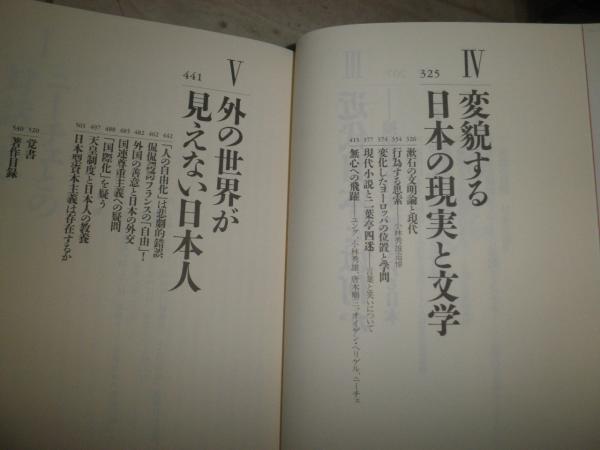 IV
変貌する
日本の現実と文学
325
326 漱石の文明論と現代
354 行為する思索——小林秀雄追悼
374 変化したヨーロッパの位置と学問
377 現代小説と二葉亭四迷——言葉と笑いについて
415 無心への飛躍——ユング、小林秀雄、唐木順三、オイゲン・ヘリゲル、ニーチェ
V
外の世界が
見えない日本人
441
442 「人の自由化」は悲劇的錯誤
462 侃侃諤諤フランスの「自由」!
482 外国の善意と日本の外交
485 国連尊重主義への疑問
488 「国際化」を疑う
497 天皇制度と日本人の教養
505 日本型資本主義は存在するか
520 覚書
540 著作目録